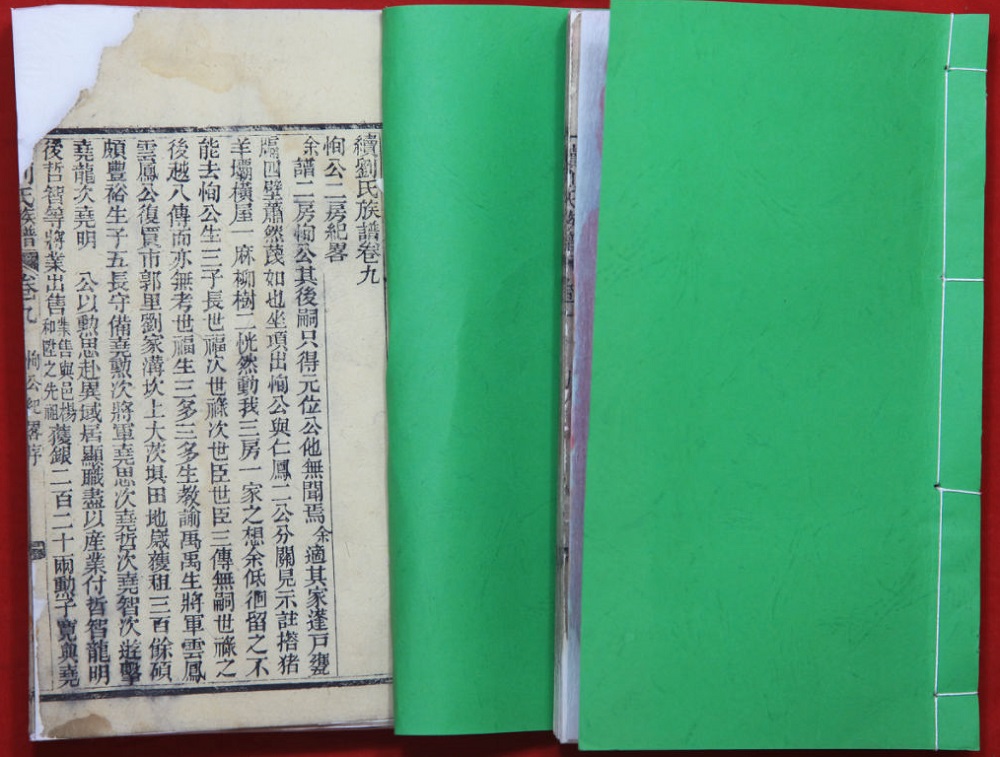 續劉氏族譜卷九
恂公二房紀畧
余譜二房恂公其後嗣只得元位公他無聞焉余適其家蓬戸甕
牖四壁蕭然蔑如也坐項出恂公與仁鳳二公分關見示註撘猪
羊壩橫屋一麻柳樹二恍然動我三房一家之想余低徊留之不
能去恂公生三子長世福次世祿次世臣世臣三傳無嗣世祿之
後越八傳而亦無考世福生三多三多生教諭禹禹生將軍雲鳳
雲鳳公復買市郭里劉家溝坎上大茨埧田地嵗穫租三百餘碩
頗豐裕生子五長守備堯勲次將軍堯思次堯哲次堯智次遊擊
堯龍次堯明 公以勲思赴異域居顯職盡以産業付哲智龍明
後哲智等將業出售業售與邑楊和陞之先祖獲銀二百二十兩勲子覽與堯
氏族譜 卷九 恂公紀畧序